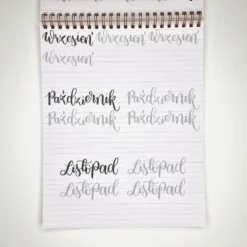 Wrzesień Wrzesień Wrzesień
Wrzesień
Październik Październik
Październik Październik
Listopad Listopad
Listopad Listopad